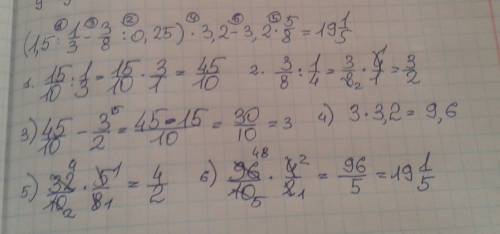 (1,5 : 1/3 - 3/8 : 0,25) · 3,2 - 3,2 · 5/8 = 19 1/5
1. 15/10 : 1/3 = 15/10 · 3/1 = 45/10 2. 3/8 : 1/4 = 3/8 2 · 4 1/1 = 3/2
3) 45/10 - 3 5/2 = 45-15/10 = 30/10 = 3 4) 3 · 3,2 = 9,6
5) 32 4/10 2 · 5 1/8 1 = 4/2 6) 96 48/10 5 · 4 2/2 1 = 96/5 = 19 1/5